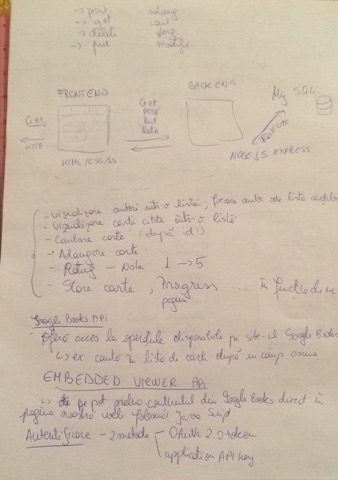 -> post adaug
-> get cer
-> delete șterg
-> put modific
FRONTEND BACKEND My SQL
Get
HTTP
Get
POST
Put
HTML/CSS/JS
NODE JS EXPRESS
- Vizualizare autori într-o listă,
- Vizualizare cărți citite într-o listă
- Căutare carte (după id!)
- Adăugare carte
- Rating - Note 1 -> 5
- Stare carte, Progress
pagini
Google Books API
- Oferă acces la disponibile pe site-ul Google Books
ex caută în lista de cărți după un câmp anume
EMBEDDED VIEWER API
se pot prelua conținutul din Google Books direct în
pagina noastră web folosind Java Script
Autentificare - 2 metode
OAuth 2.0 token
application API key